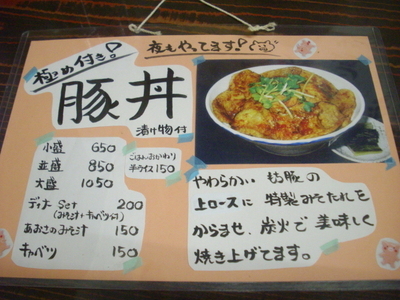 極め付き!
夜もやってます!
豚丼
漬け物付
小盛 650
並盛 850
大盛 1050
ごはんのおかわり
半ライス 150
set 200
(みそ汁+キャベツ付)
あおさのみそ汁 150
キャベツ 150
やわらかい 豚の
上ロースに 特製みそたれを
からませ、炭火で美味しく
焼き上げてます。